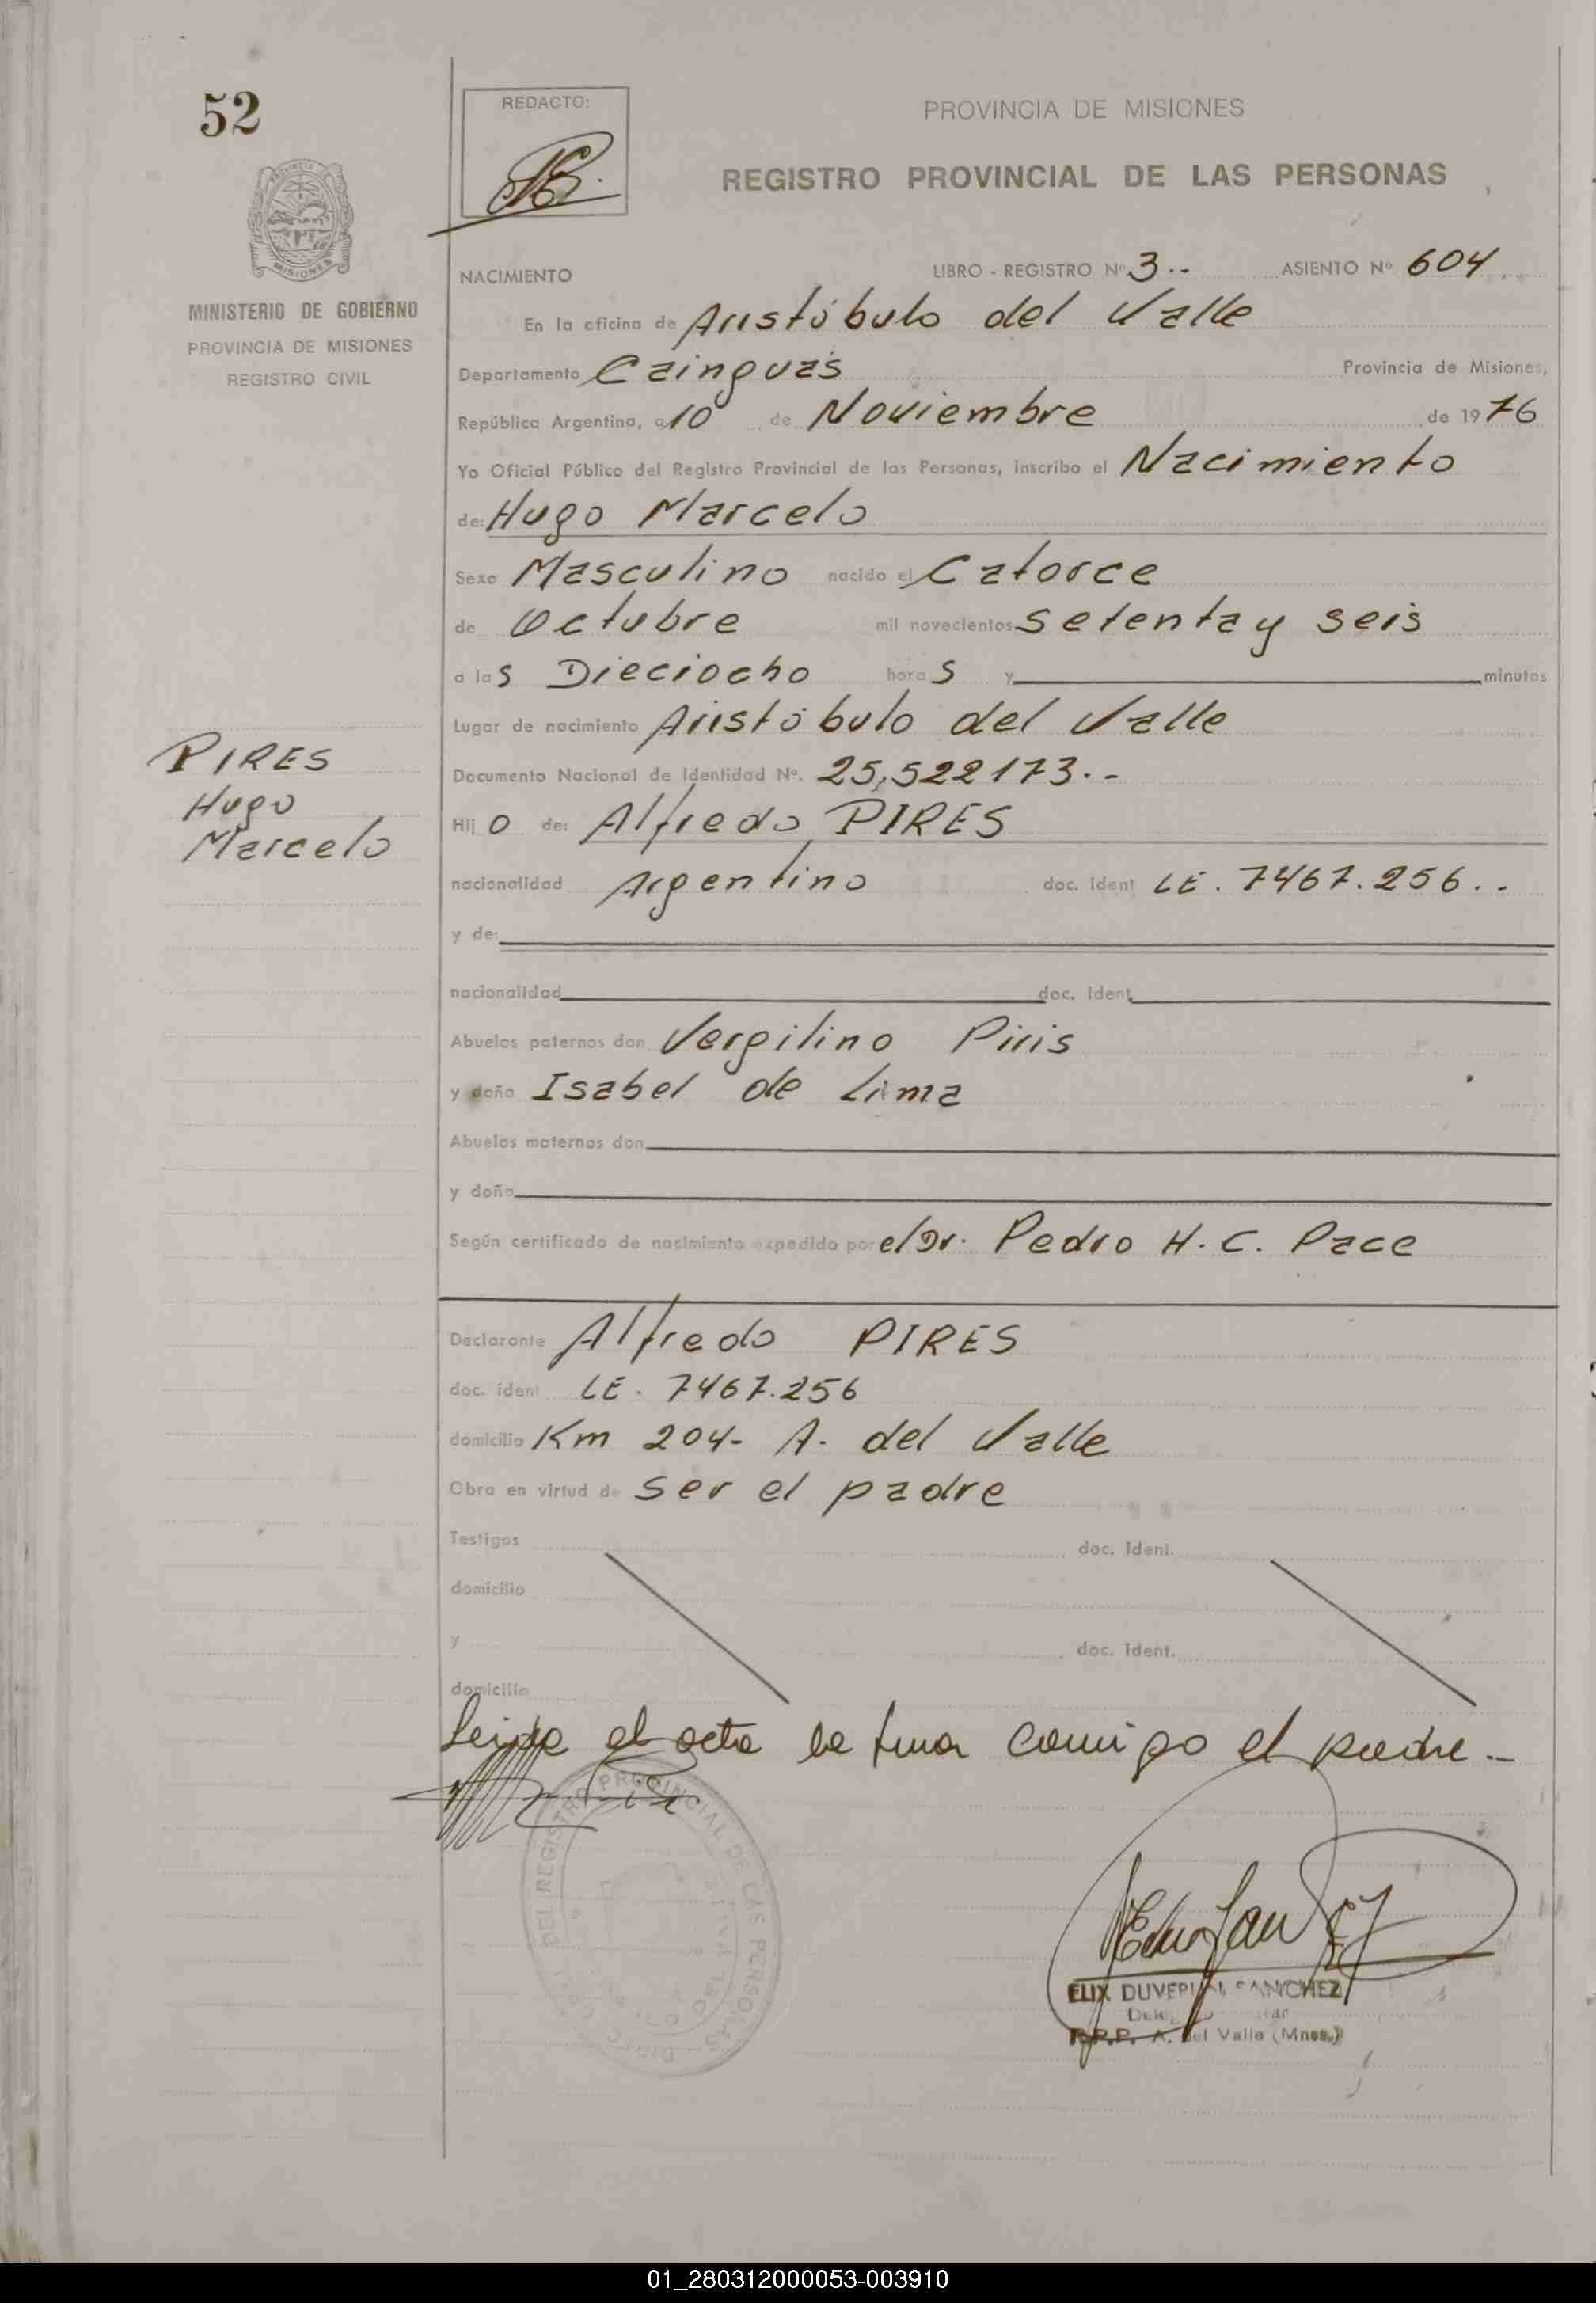 52
REDACTO:
PROVINCIA DE MISIONES
REGISTRO PROVINCIAL DE LAS PERSONAS
MISIONES
MINISTERIO DE GOBIERNO
PROVINCIA DE MISIONES
REGISTRO CIVIL
NACIMIENTO LIBRO - REGISTRO Nº 3.- ASIENTO Nº 604
En la oficina de Aristóbulo del Valle
Departamento Cainguás Provincia de Misiones,
República Argentina, a 10 de Noviembre de 1976
Yo Oficial Público del Registro Provincial de las Personas, inscribo el Nacimiento
de: Hugo Marcelo
Sexo Masculino nacido el Catorce
de Octubre mil novecientos setenta y seis
a las Dieciocho horas y minutos
Lugar de nacimiento Aristóbulo del Valle
PIRES
Hugo
Marcelo
Documento Nacional de Identidad Nº. 25,522173.-
Hijo de: Alfredo PIRES
nacionalidad Argentino doc. ident LE. 7467.256..
y de:
nacionalidad doc. ident
Abuelos paternos don Vergilino Piris
y doña Isabel de Lima
Abuelos maternos don
y doña
Según certificado de nacimiento expedido por el Dr. Pedro H. C. Pace
Declarante Alfredo PIRES
doc. ident LE. 7467.256
domicilio Km 204- A. del Valle
Obra en virtud de ser el padre
Testigos doc. ident.
domicilio
y doc. ident.
domicilio
Leida el acta la firma comigo el padre.-
DEL REGISTRO PROVINCIAL DE LAS PERSONAS
ELIX DUVERAL SANCHEZ
R.P.P. A. del Valle (Mnes.)
01_280312000053-003910